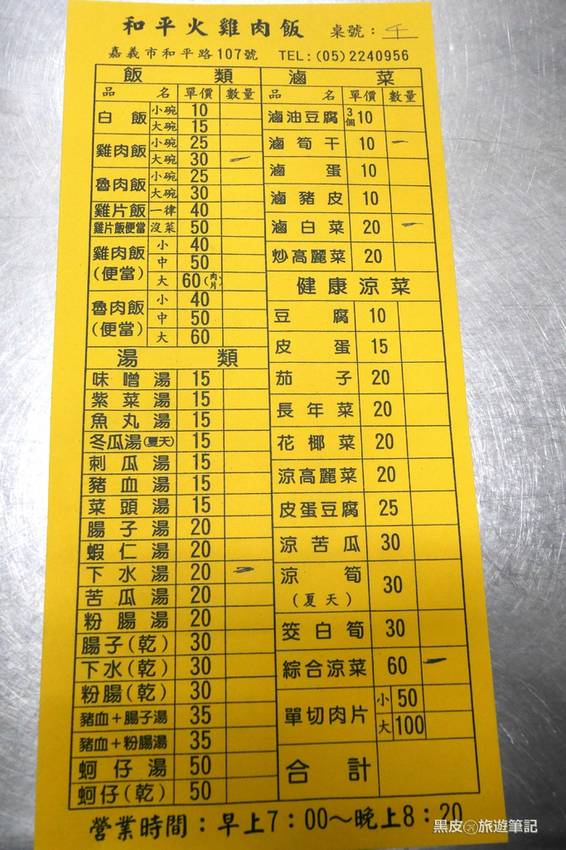 和平火雞肉飯 桌號：
嘉義市和平路107號 TEL:(05)2240956
飯類
品名 單價 數量
白飯 小碗 10
大碗 15
雞肉飯 小碗 25
大碗 30 一
魯肉飯 小碗 25
大碗 30
雞片飯 一律 40
雞片飯便當 沒菜 50
雞肉飯(便當) 小 40
中 50
大 60(肉片)
魯肉飯(便當) 小 40
中 50
大 60
湯類
味噌湯 15
紫菜湯 15
魚丸湯 15
冬瓜湯(夏天) 15
刺瓜湯 15
豬血湯 15
菜頭湯 15
腸子湯 20
蝦仁湯 20
下水湯 20 一
苦瓜湯 20
粉腸湯 20
腸子(乾) 30
下水(乾) 30
粉腸(乾) 30
豬血+腸子湯 35
豬血+粉腸湯 35
蚵仔湯 50
蚵仔(乾) 50
滷菜
品名 單價 數量
滷油豆腐 3個 10
滷筍干 10 一
滷蛋 10
滷豬皮 10
滷白菜 20 一
炒高麗菜 20
健康涼菜
豆腐 10
皮蛋 15
茄子 20
長年菜 20
花椰菜 20
涼高麗菜 20
皮蛋豆腐 25
涼苦瓜 30
涼筍(夏天) 30
筊白筍 30
綜合涼菜 60 一
單切肉片 小 50
大 100
合計
營業時間：早上7：00～晚上8：20
黑皮的旅遊筆記